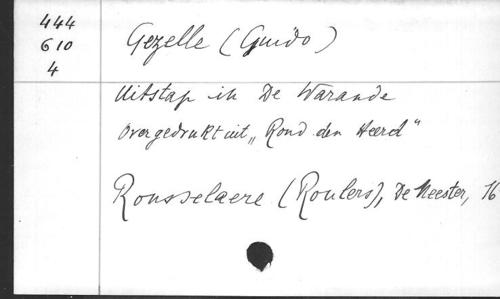 444
610
4
Gezelle (Guido)
Uitstap in De Warande
overgedrukt uit „Rond den Heerd“
Rousselaere (Roulers), De Meester, 16